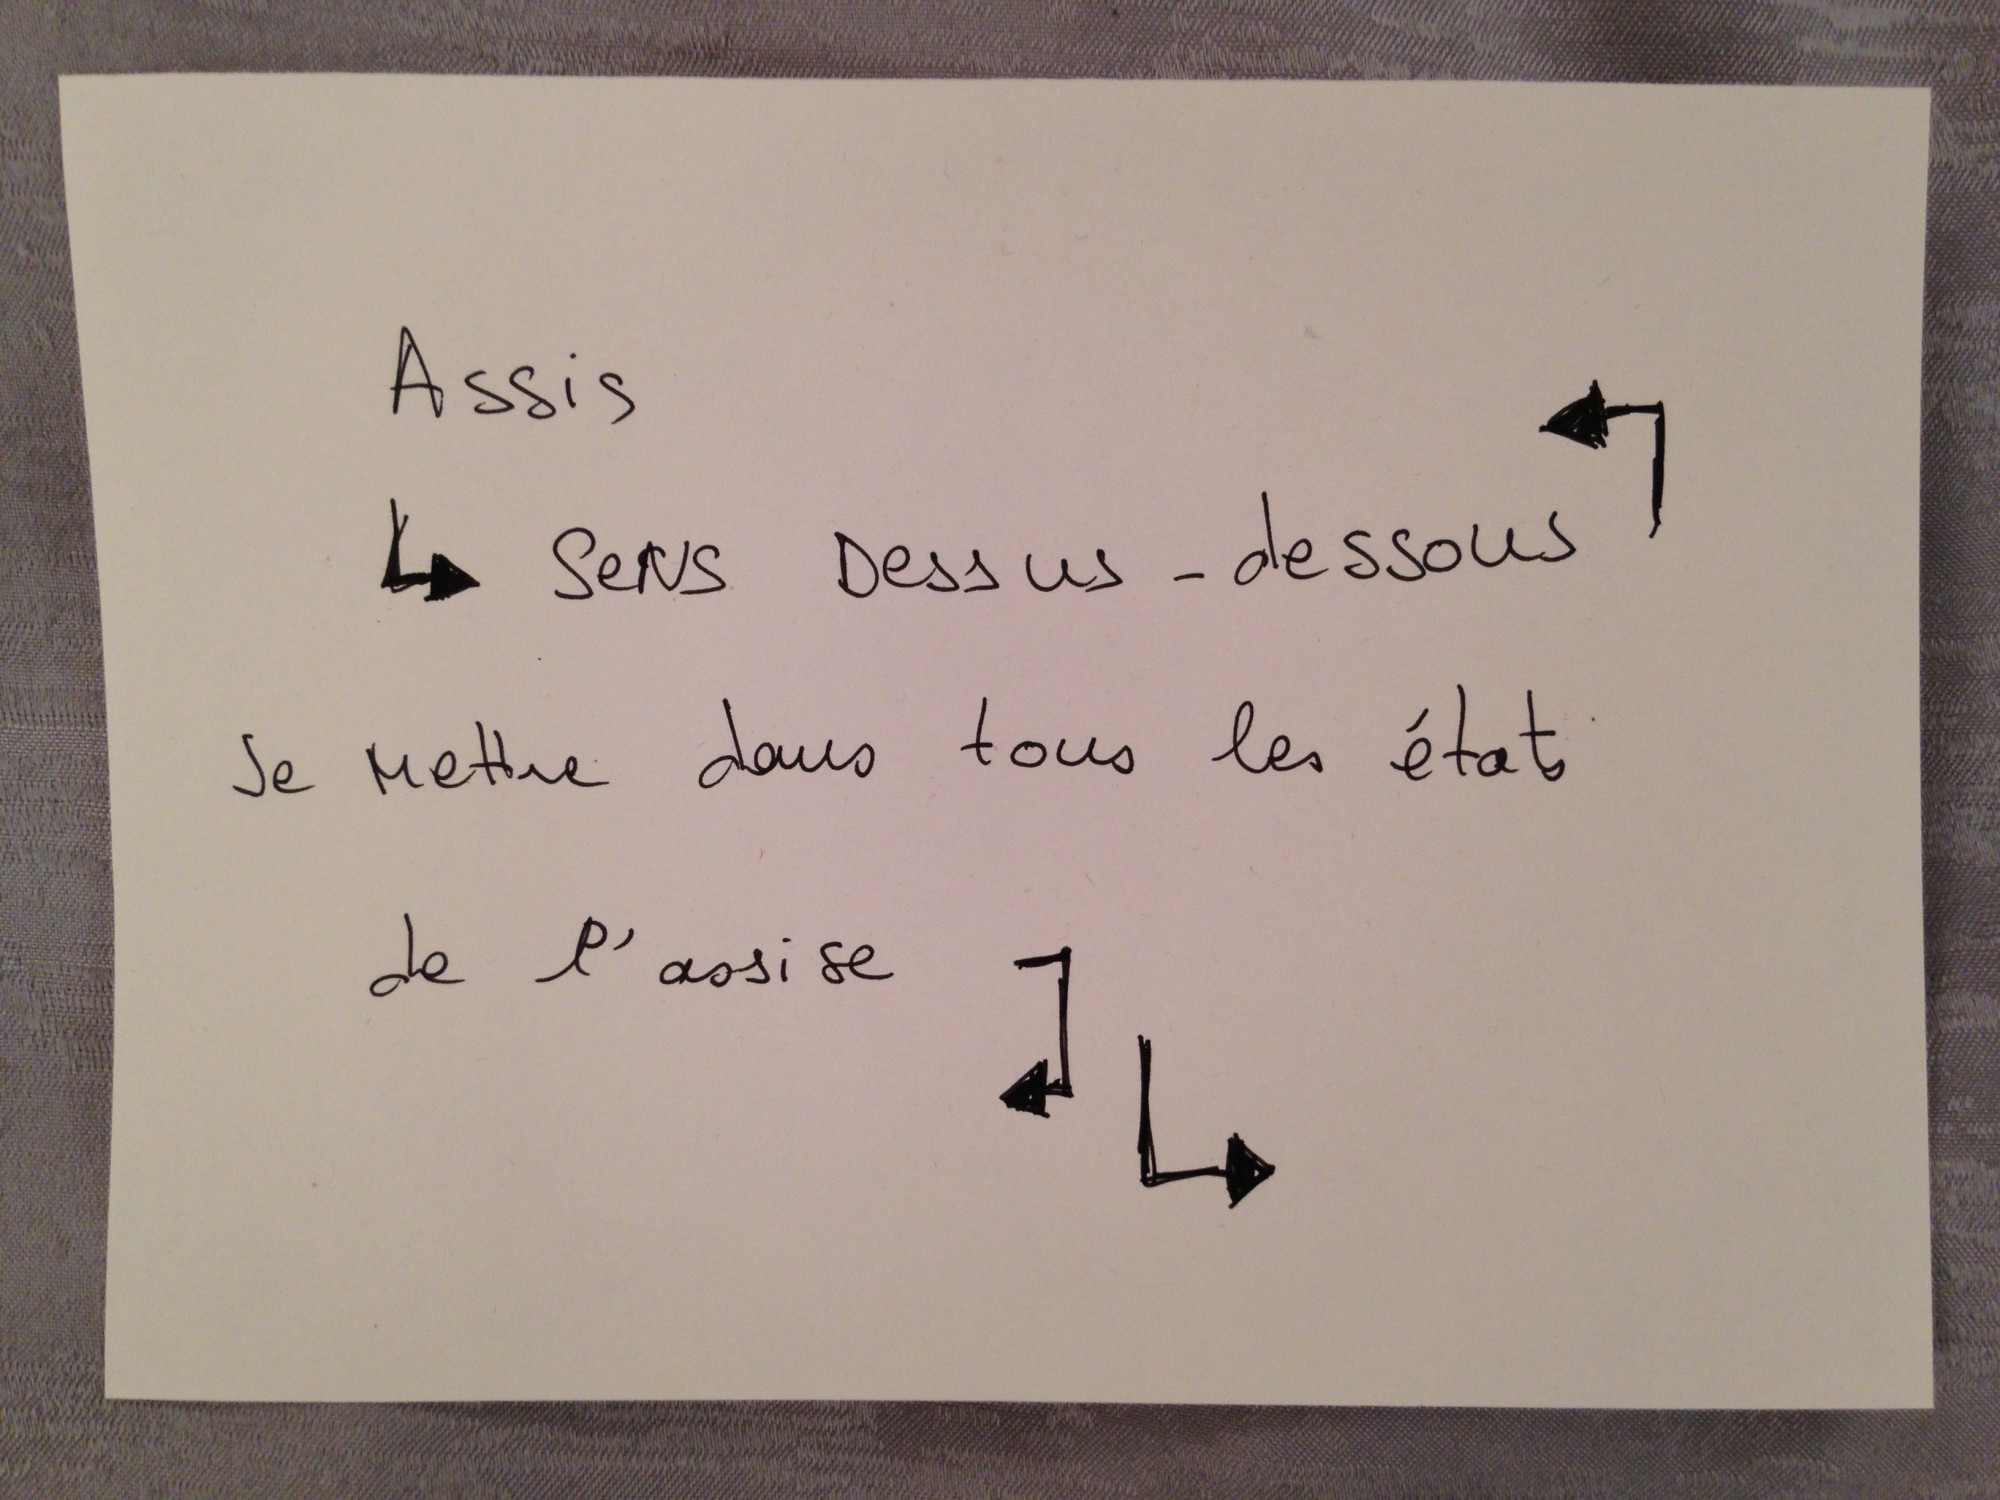 Assis
Sens Dessus-dessous
Se mettre dans tous les états
de l'assise